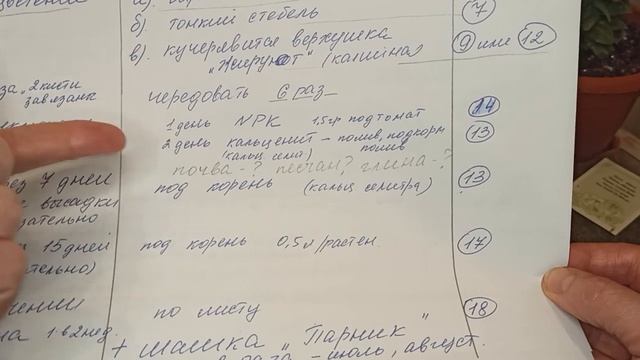 б). тонкий стебель
7
в). кучерявится верхушка
"жируют" (кальций)
9 или 12
за "2 кисти
завязан
чередовать 6 раз
1 день NPK 1,5гр под томат
14
2 день кальцений - полив, подкорм
13
(кальц селит) полив
почва-? песчан? глина-?
без 7 дней
под корень (кальц селитра)
13
высадки
15 дней
под корень 0,5 л/растен.
17
по листу
18
1 в 2 нед.
+ шашка "Парник"
- июль, август.